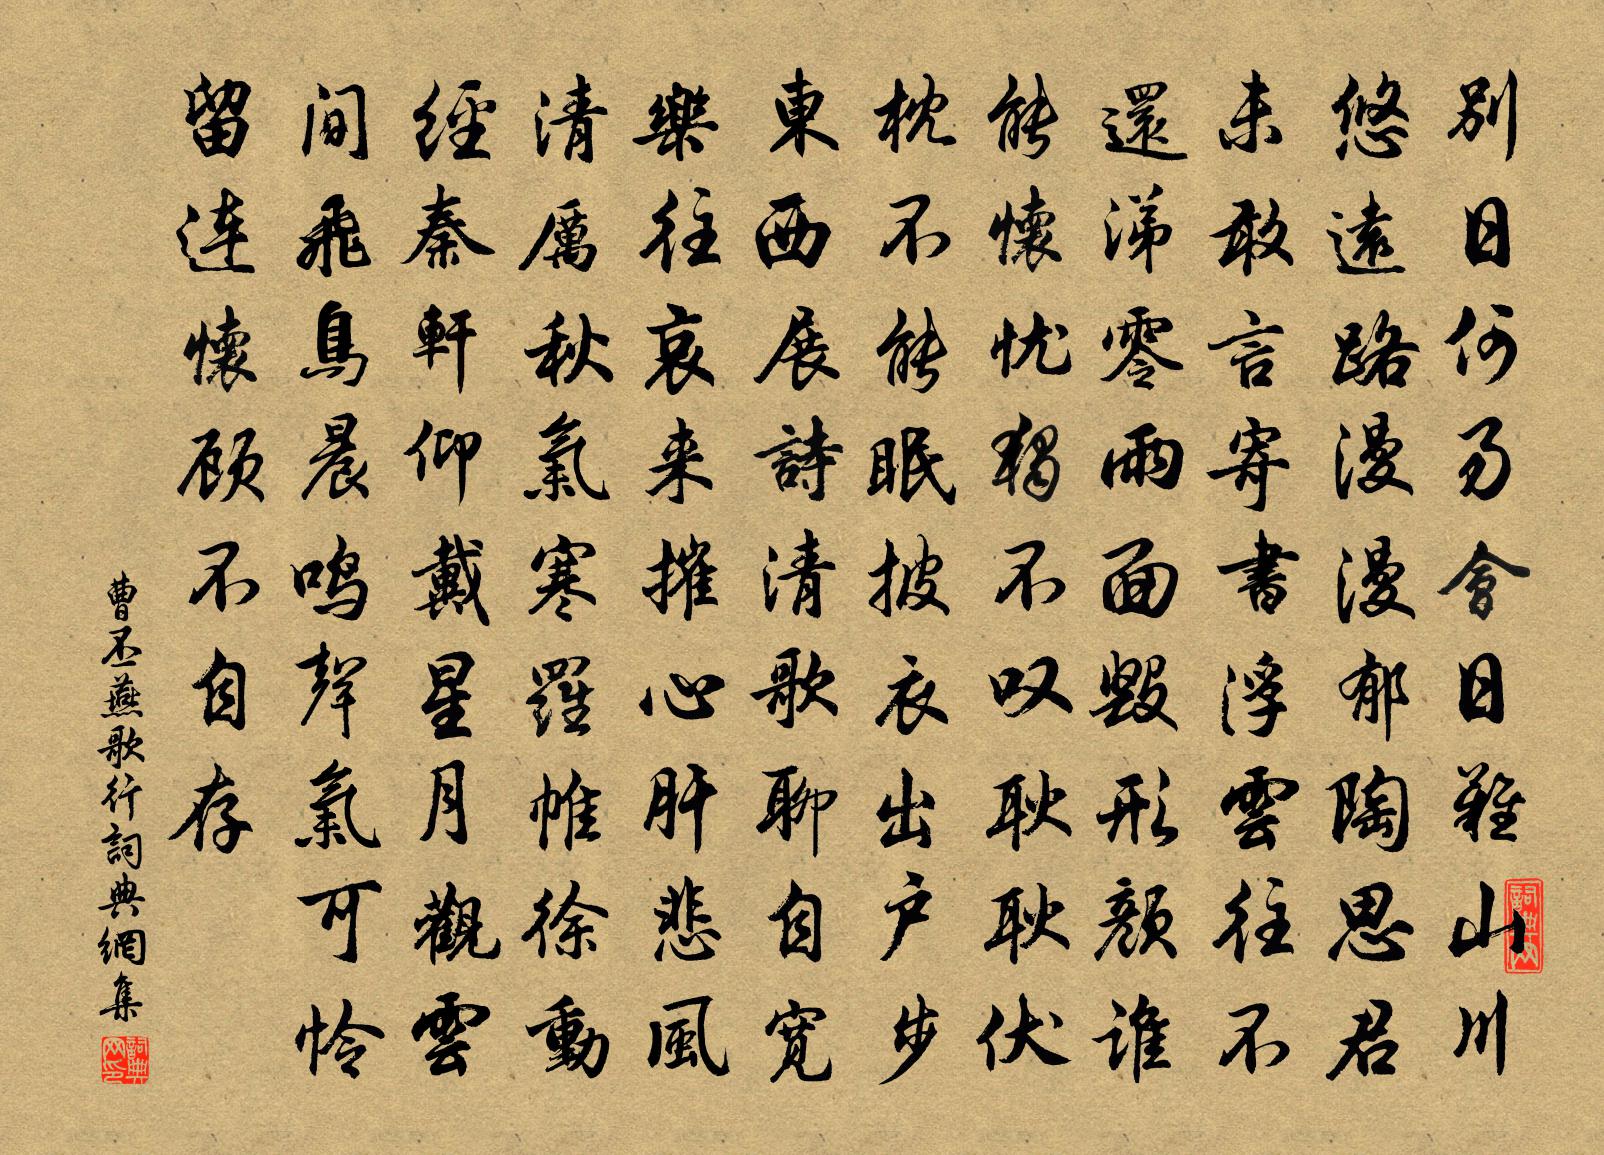 別日何易會日難山川
悠遠路漫漫郁陶思君
未敢言寄書浮雲往不
還涕零雨面毀形顏谁
能懷忧獨不叹耿耿伏
枕不能眠披衣出户步
東西展詩清歌聊自宽
樂往哀来摧心肝悲風
清厲秋氣寒羅帷徐動
經秦軒仰戴星月觀雲
间飛鳥晨鸣聲氣可怜
留连懷顾不自存
曹丕燕歌行詞典網集
詞典网
詞典网印